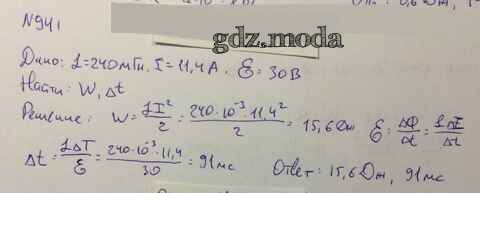 N941
gdz.moda
Дано: L=240мГн, I=11,4А, ℰ=30В
Найти: W, Δt
Решение: W = LI²/2 = 240·10⁻³·11,4²/2 = 15,6Дж ℰ = ΔФ/Δt = LΔI/Δt
Δt = LΔI/ℰ = 240·10⁻³·11,4/30 = 91мс Ответ: 15,6Дж, 91мс